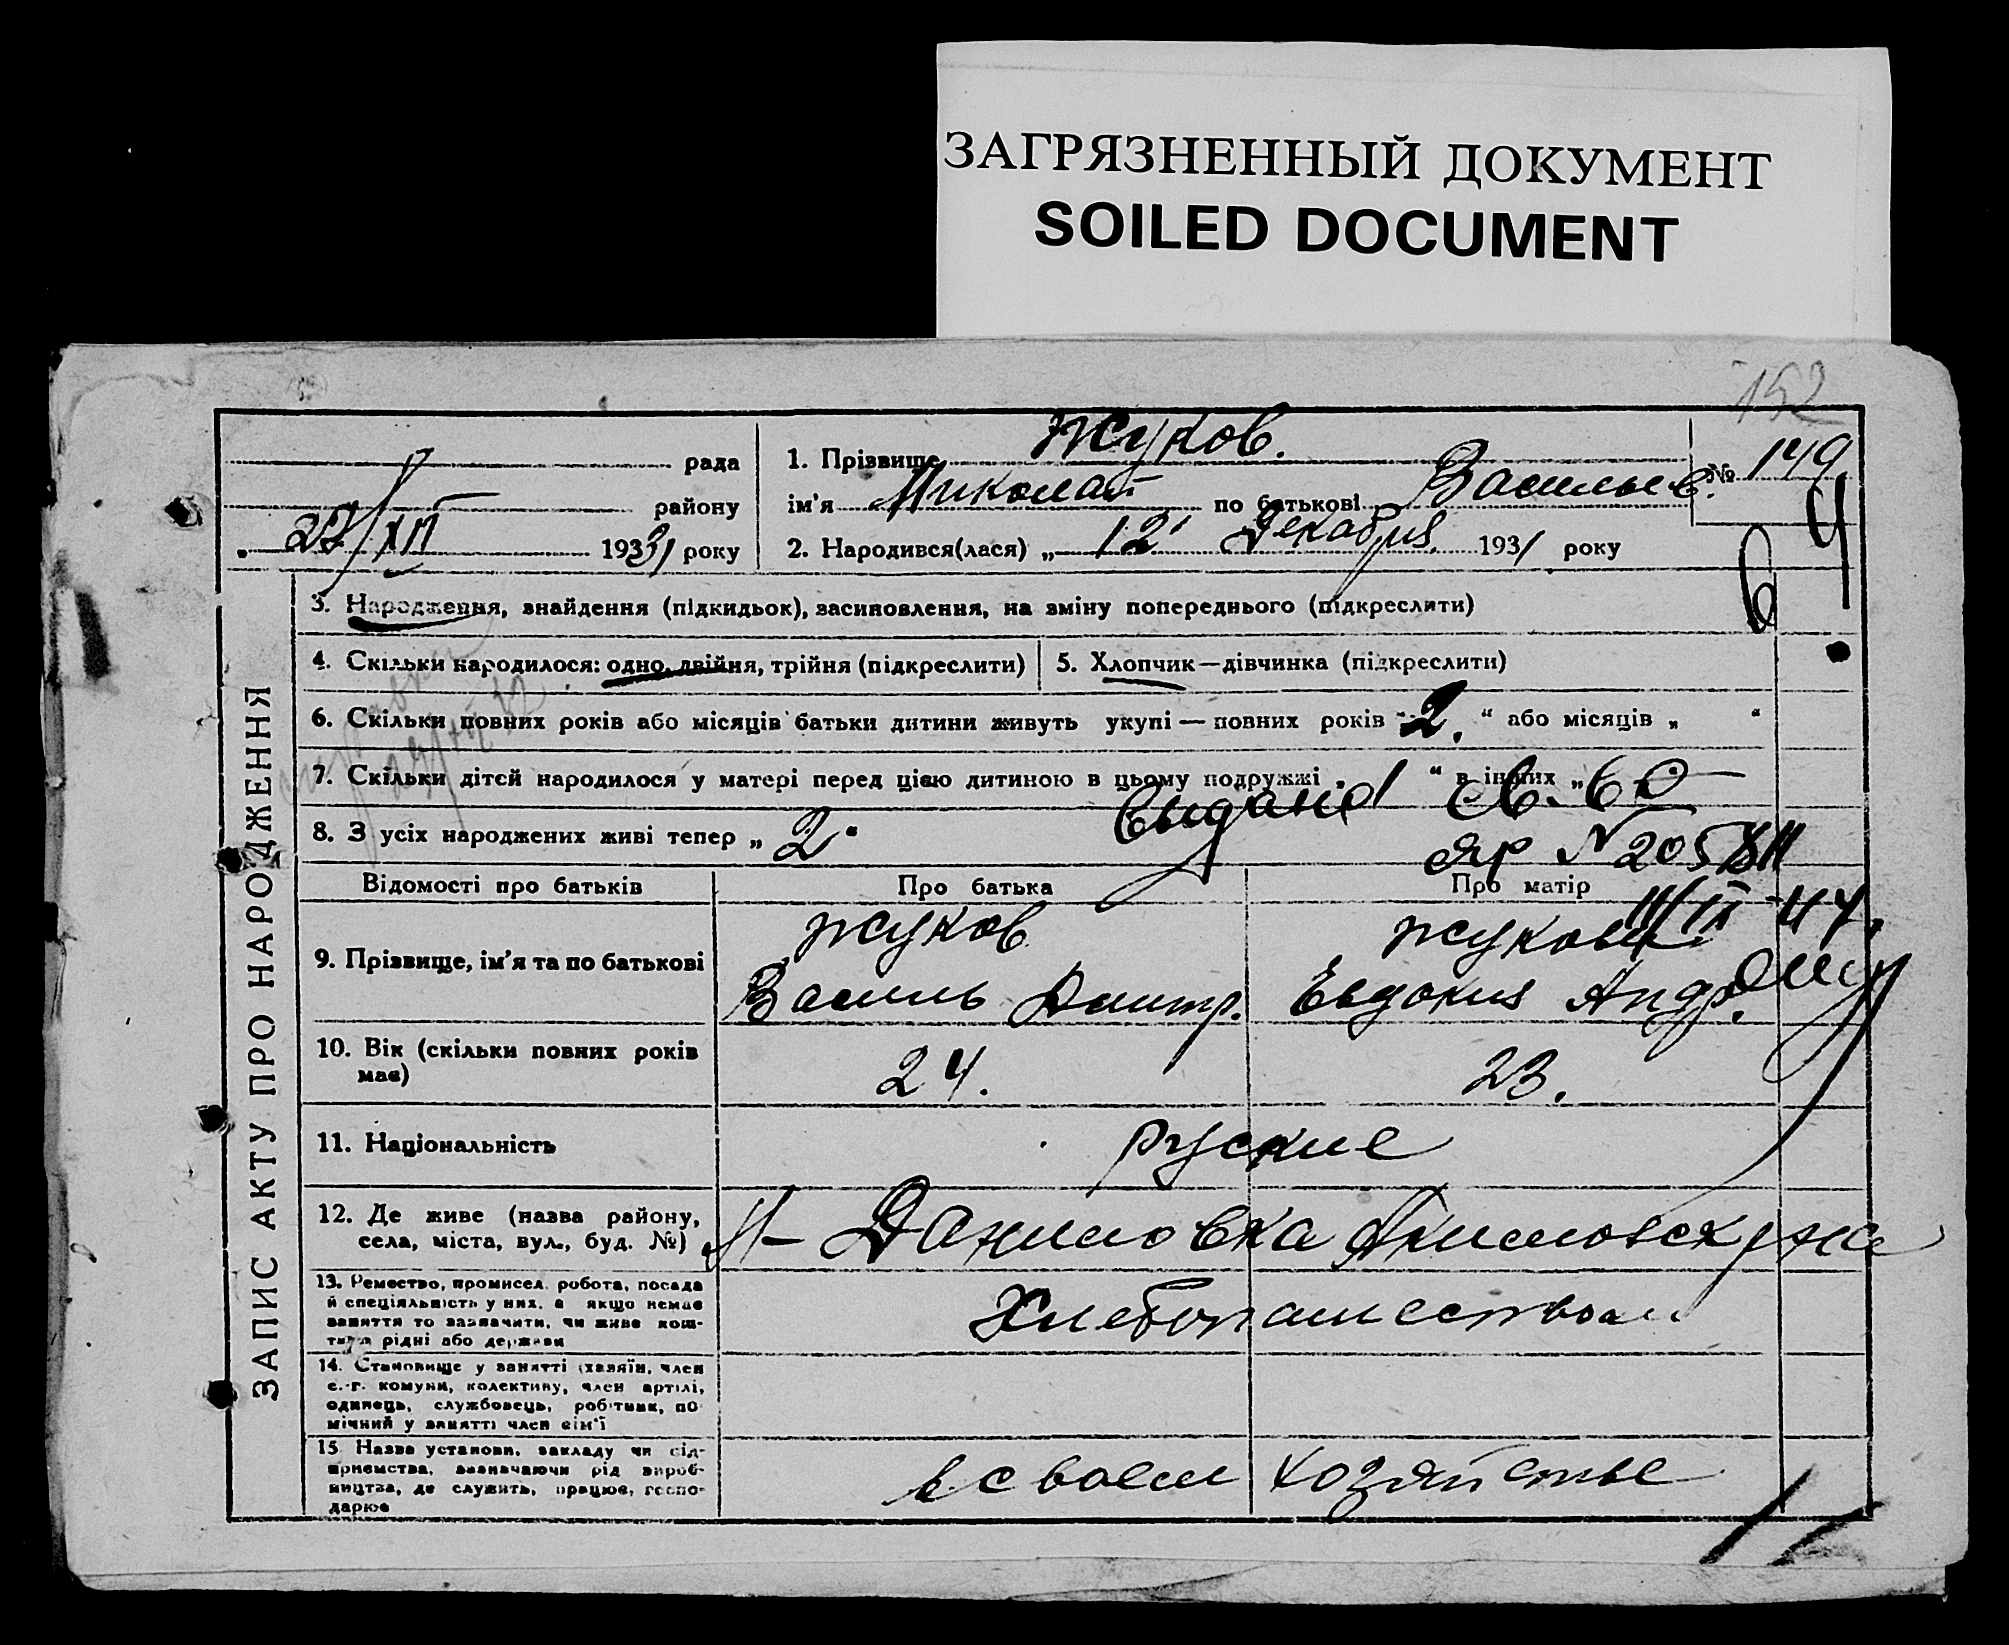 ЗАГРЯЗНЕННЫЙ ДОКУМЕНТ
SOILED DOCUMENT
152
рада
району
27/XII 1931 року
1. Прізвище Жуков.
ім'я Миколай по батькові Васильев.
№ 149
2. Народився(лася) „ 12 Декабря 1931 року
ЗАПИС АКТУ ПРО НАРОДЖЕННЯ
3. Народження, знайдення (підкидьок), засиновлення, на зміну попереднього (підкреслити)
4. Скільки народилося: одно, двійня, трійня (підкреслити)
5. Хлопчик—дівчинка (підкреслити)
6. Скільки повних років або місяців батьки дитини живуть укупі — повних років „ 2. “ або місяців „ “
7. Скільки дітей народилося у матері перед цією дитиною в цьому подружжі „ 1 “ в інших „
8. З усіх народжених живі тепер „ 2 “
Выдано св. во
ЯР № 205
Відомості про батьків
Про батька
Про матір
9. Прізвище, ім'я та по батькові
Жуков
Василь Дмитр.
Жукова
Евдокия Андр.
10. Вік (скільки повних років має)
24.
23.
11. Національність
руские
12. Де живе (назва району,
села, міста, вул., буд. №)
Н-Даниловка Акимовск
13. Ремество, промисел, робота, посада
й спеціяльність у них, а якщо немає
заняття то зазначити, чи живе кош-
тами рідні або держави
Хлебопашеством
14. Становище у занятті (хазяїн, член
с.-г. комуни, колективу, член артілі,
одинець, службовець, робітник, по-
мічний у занятті член сім'ї
15. Назва установи, закладу чи під-
приємства, зазначаючи рід вироб-
ництва, де служить, працює, госпо-
дарює
в своем хозяйстве